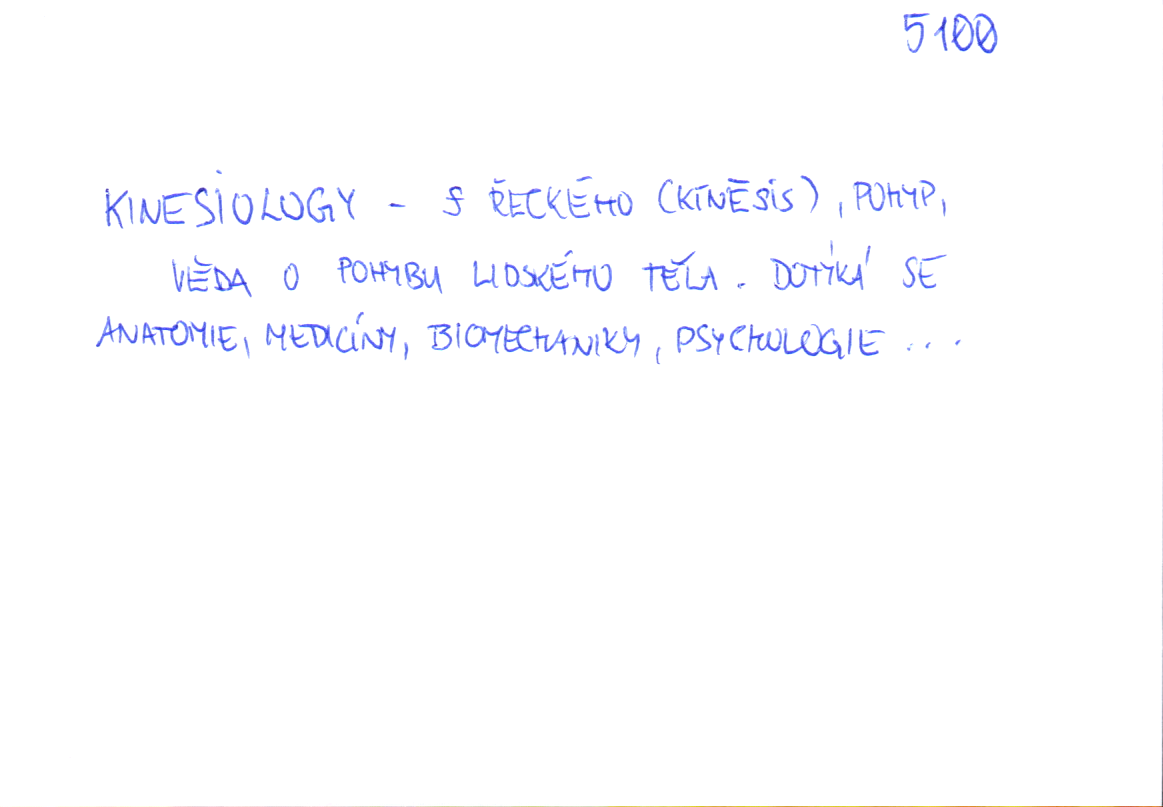 5100
KINESIOLOGY - S ŘECKÉHO (KÍNĒSIS), POHYP,
VĚDA O POHYBU LIDSKÉHO TĚLA. DOTÝKÁ SE
ANATOMIE, MEDICÍNY, BIOMECHANIKY, PSYCHOLOGIE ...